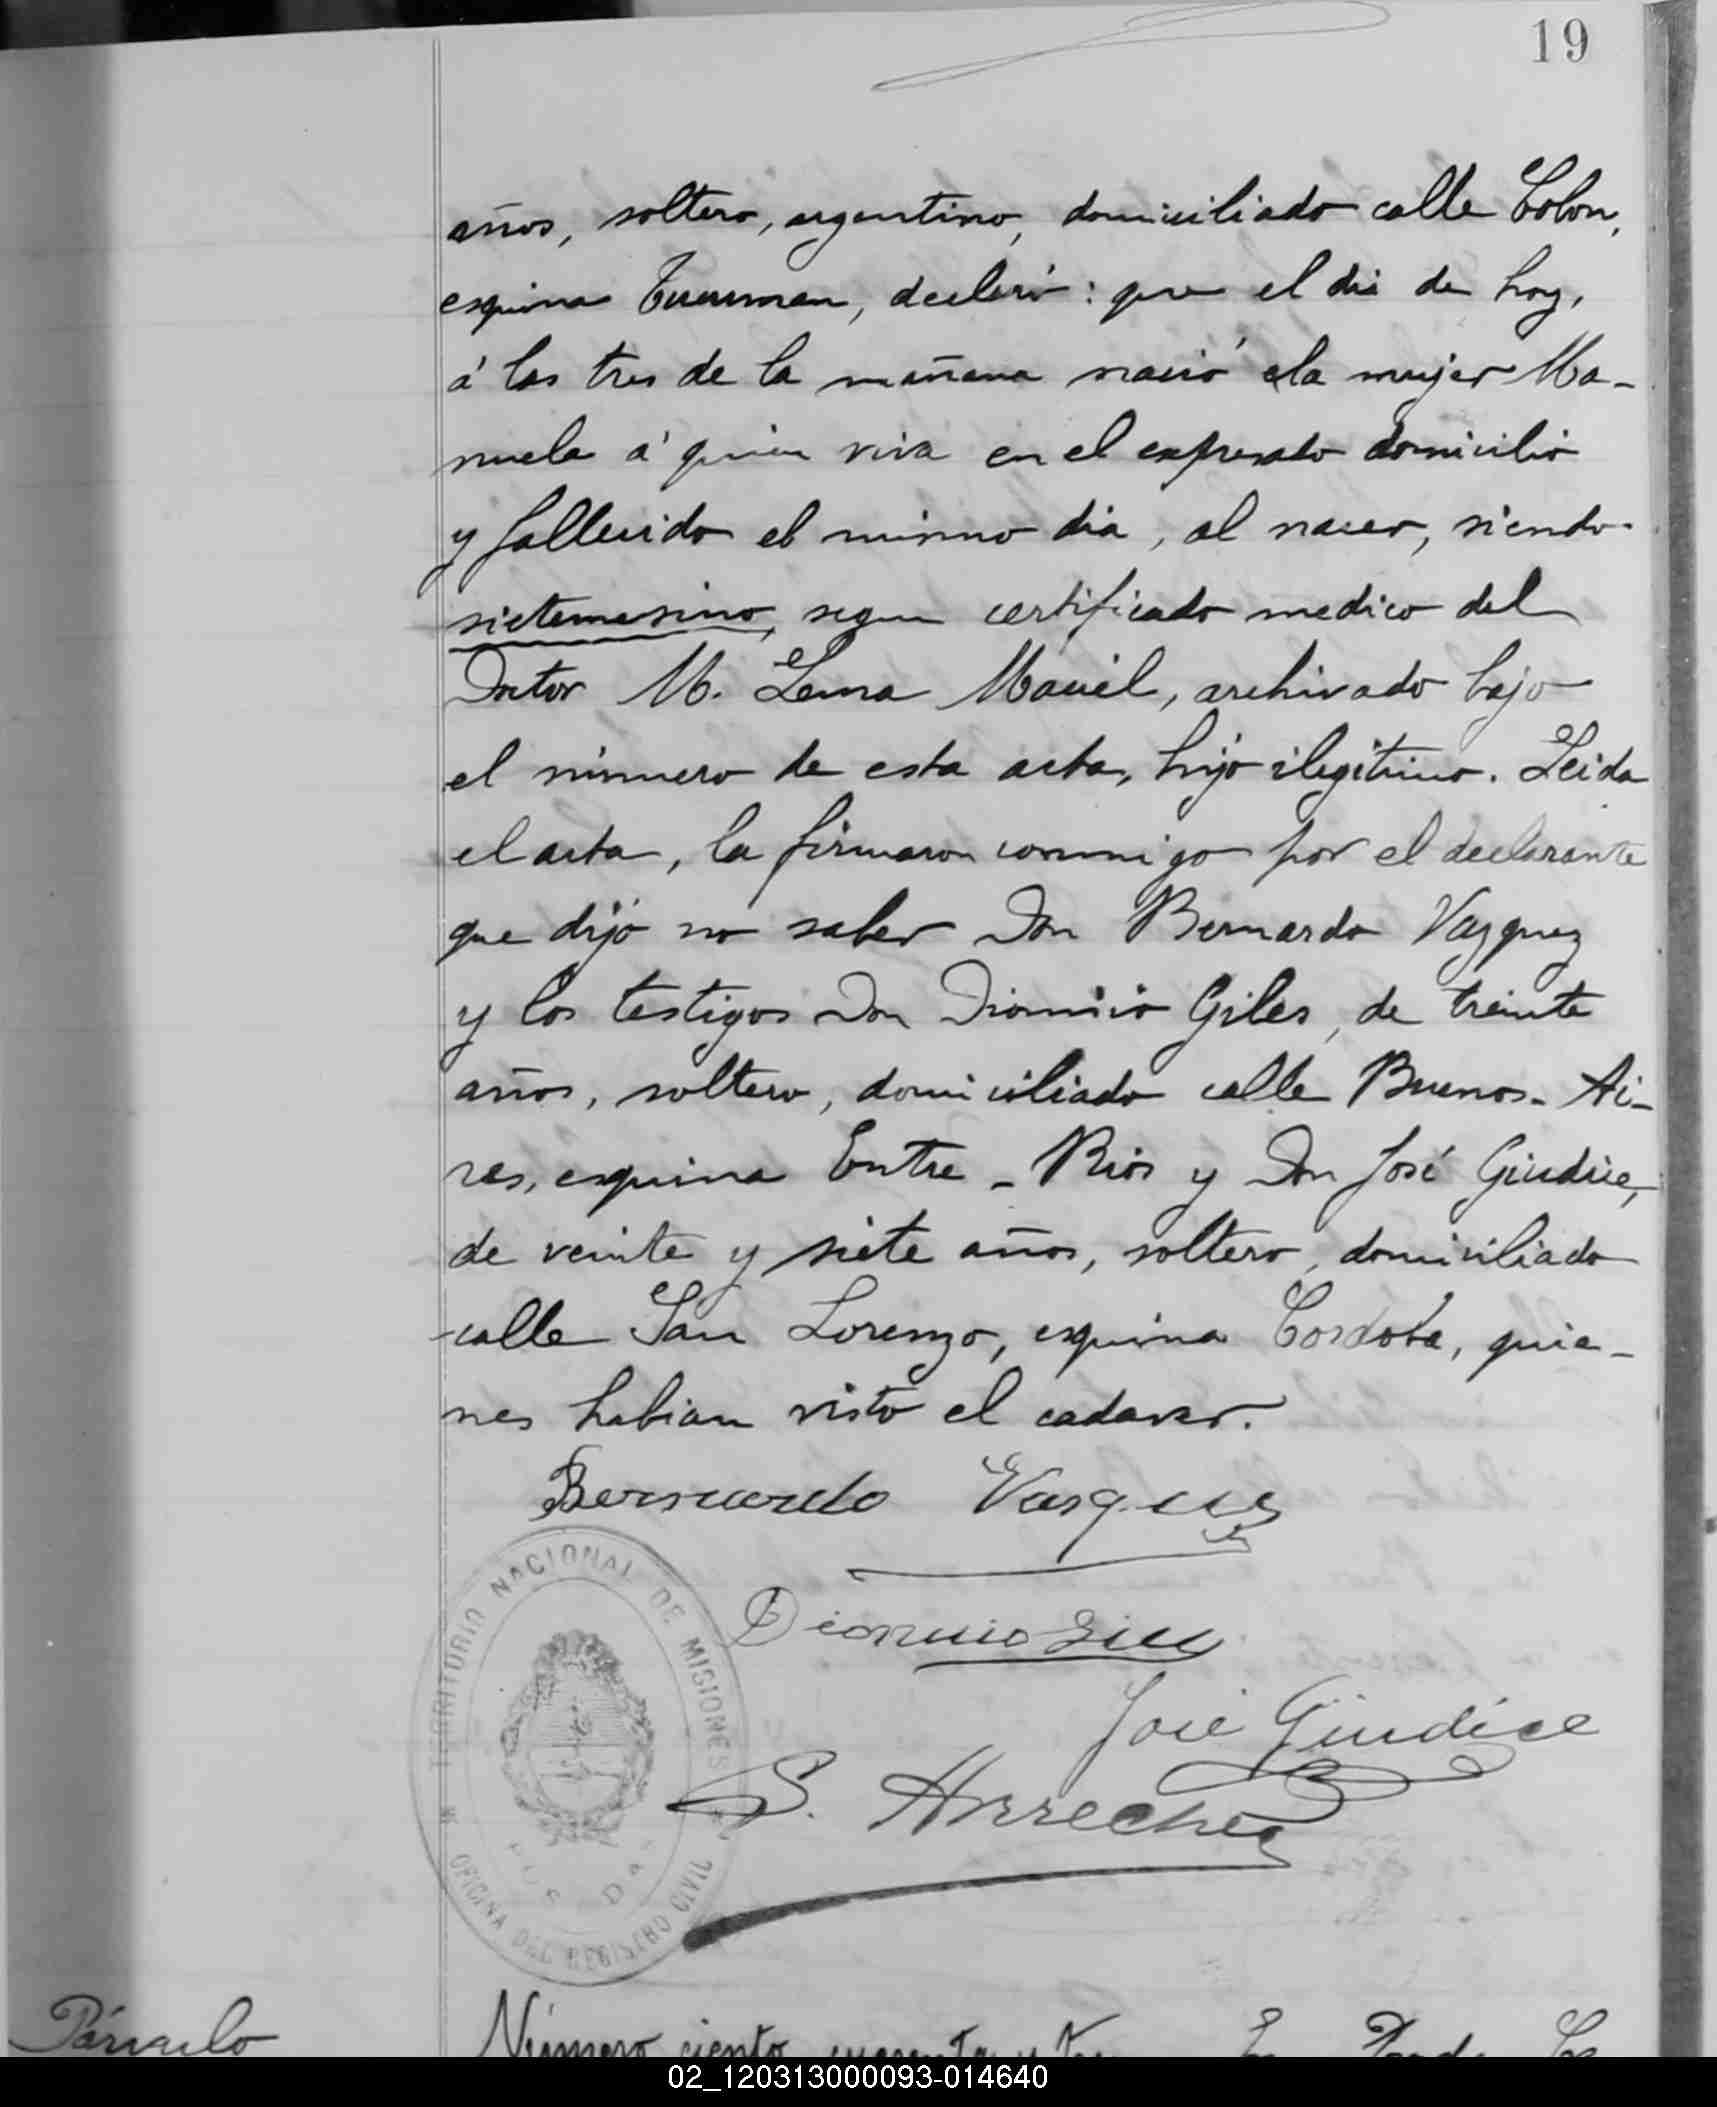 19
años, soltero, argentino, domiciliado calle Colon,
esquina Tucuman, declaró: que el dia de hoy,
á las tres de la mañana nació de la mujer Ma-
nuela á quien viva en el expresado domicilio
y fallecido el mismo dia, al nacer, siendo
sietemesino, segun certificado medico del
Doctor M. Lema Maciel, archivado bajo
el número de esta acta, hijo ilegitimo. Leida
el acta, la firmaron conmigo por el declarante
que dijó no saber Don Bernardo Vazquez
y los testigos Don Dionicio Giles, de treinta
años, soltero, domiciliado calle Buenos-Ai-
res, esquina Entre-Rios y Don José Giudice,
de veinte y siete años, soltero, domiciliado
calle San Lorenzo, esquina Cordoba, quie-
nes habian visto el cadaver.
Bernardo Vasquez
Dionicio
José Giudice
S. Arrechea
TERRITORIO NACIONAL DE MISIONES
OFICINA DEL REGISTRO CIVIL
Párvulo
Número ciento cuarenta y
02_120313000093-014640